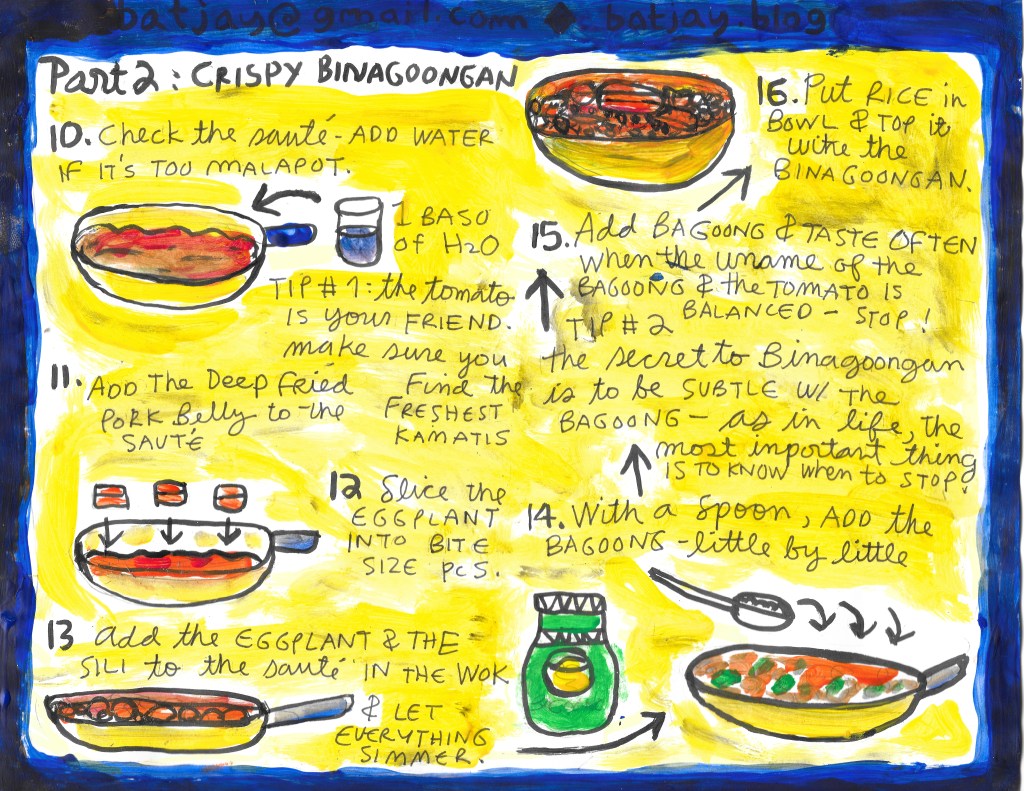 batjay@gmail.com ◆ batjay.blog
Part 2: CRISPY BINAGOONGAN
10. Check the sauté - ADD WATER
IF IT'S TOO MALAPOT.
1 BASO
of H2O
TIP # 1: the tomato
IS your FRIEND.
make sure you
Find the
FRESHEST
KAMATIS
11. ADD THE Deep Fried
PORK Belly to the
SAUTÉ
12 Slice the
EGGPLANT
INTO BITE
SIZE pcs.
13 add the EGGPLANT & THE
SILI to the sauté IN THE WOK
& LET
EVERYTHING
SIMMER.
14. With a Spoon, ADD the
BAGOONG - little by little
15. Add BAGOONG & TASTE OFTEN
when the uname of the
BAGOONG & the TOMATO IS
BALANCED - STOP!
TIP # 2
the secret to Binagoongan
is to be SUBTLE W/ THE
BAGOONG - as in life, the
most important thing
IS TO KNOW when to STOP!
16. Put RICE in
BOWL & TOP it
with the
BINAGOONGAN.